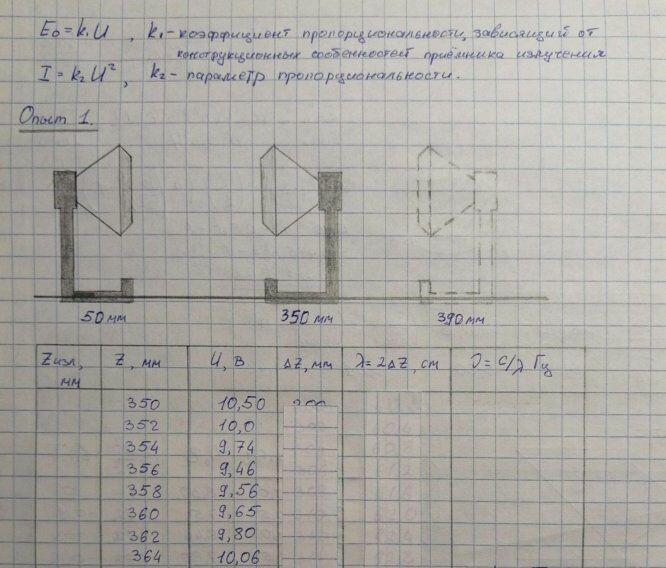 E₀ = k₁U , k₁ - коэффициент пропорциональности, зависящий от
конструкционных собенностей приёмника излучения
I = k₂U², k₂ - параметр пропорциональности.
Опыт 1.
50 мм 350 мм 390 мм
Zизл, мм Z, мм U, В ΔZ, мм λ = 2ΔZ, см ν = c/λ Гц
350 10,50
352 10,0
354 9,74
356 9,46
358 9,56
360 9,65
362 9,80
364 10,06